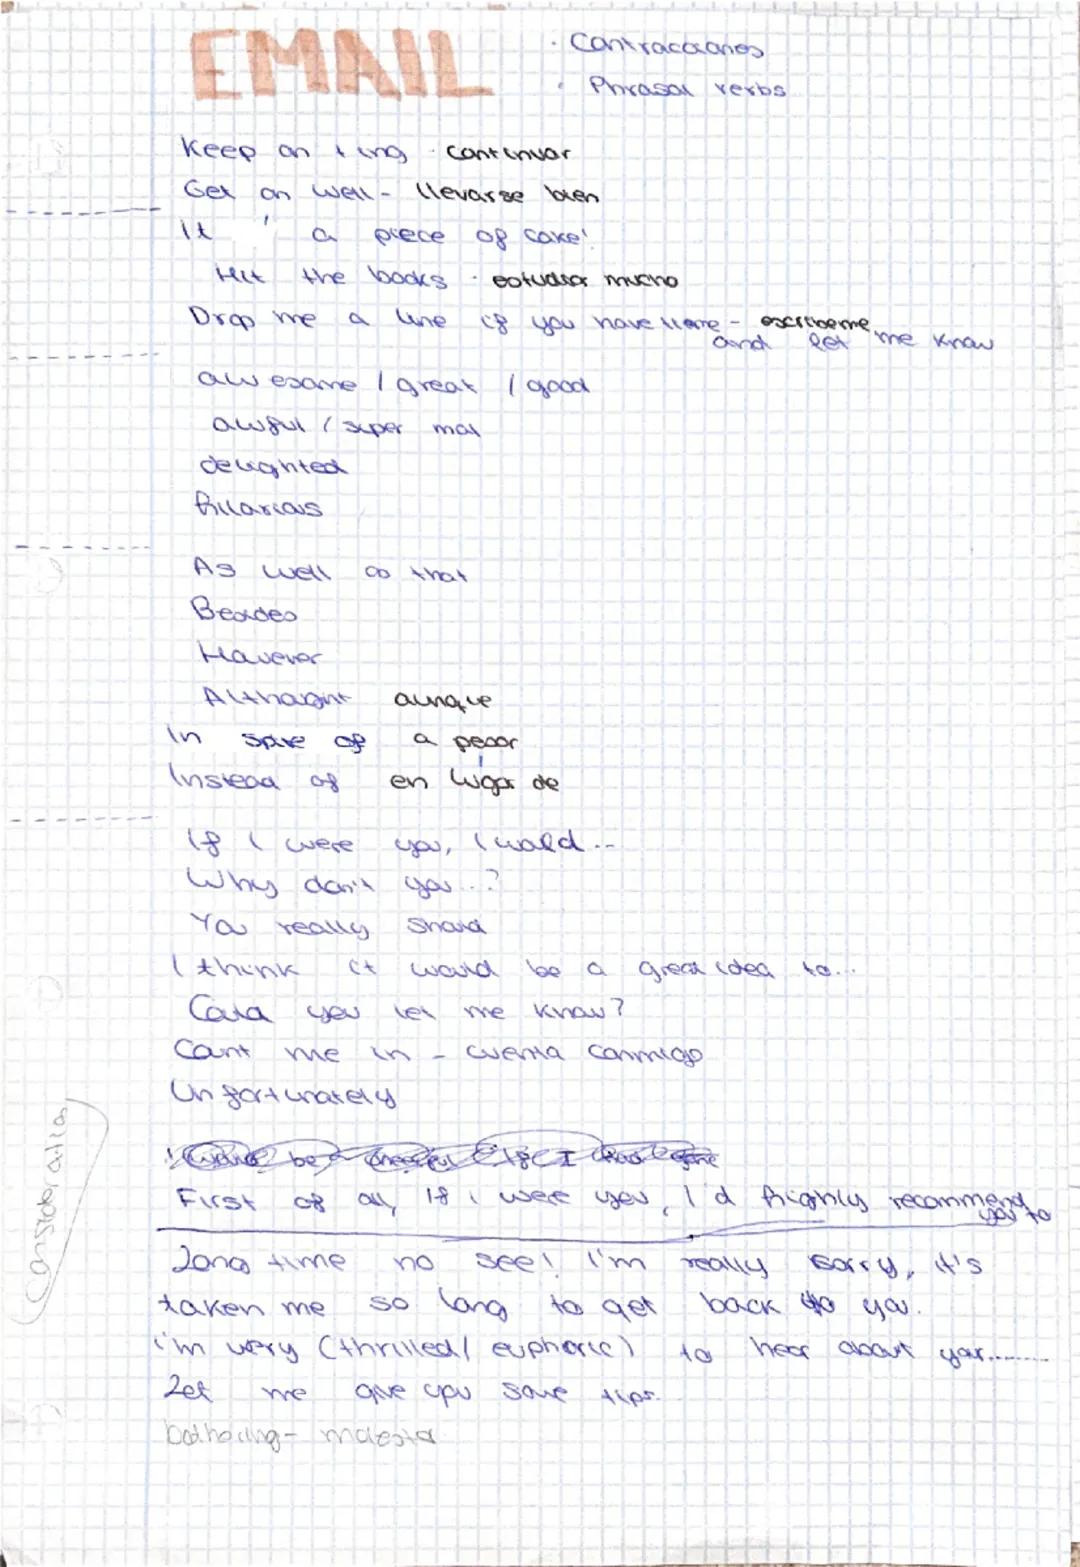 EMAIL
· Contracciones
· Phrasal verbs
Keep on + ing · continuar
Get on well - llevarse bien
It ' a piece of cake!
Hit the books · estudiar mucho
Drop me a line if you have time - escribeme
and let me know
awesome / great / good
awful / super mal
delighted
hilarious
As well as that
Besides
However
Althought aunque
In spite of a pesar
Instead of en lugar de
If I were you, I would...
Why don't you...?
You really should
I think it would be a great idea to...
Could you let me know?
Count me in - cuenta conmigo
Unfortunately
First of all, If i were you, I'd highly recommend
you to
Long time no see! I'm really sorry, it's
taken me so long to get back to you.
I'm very (thrilled/ euphoric) to hear about your........
Let me give you some tips.
bothering - molestar